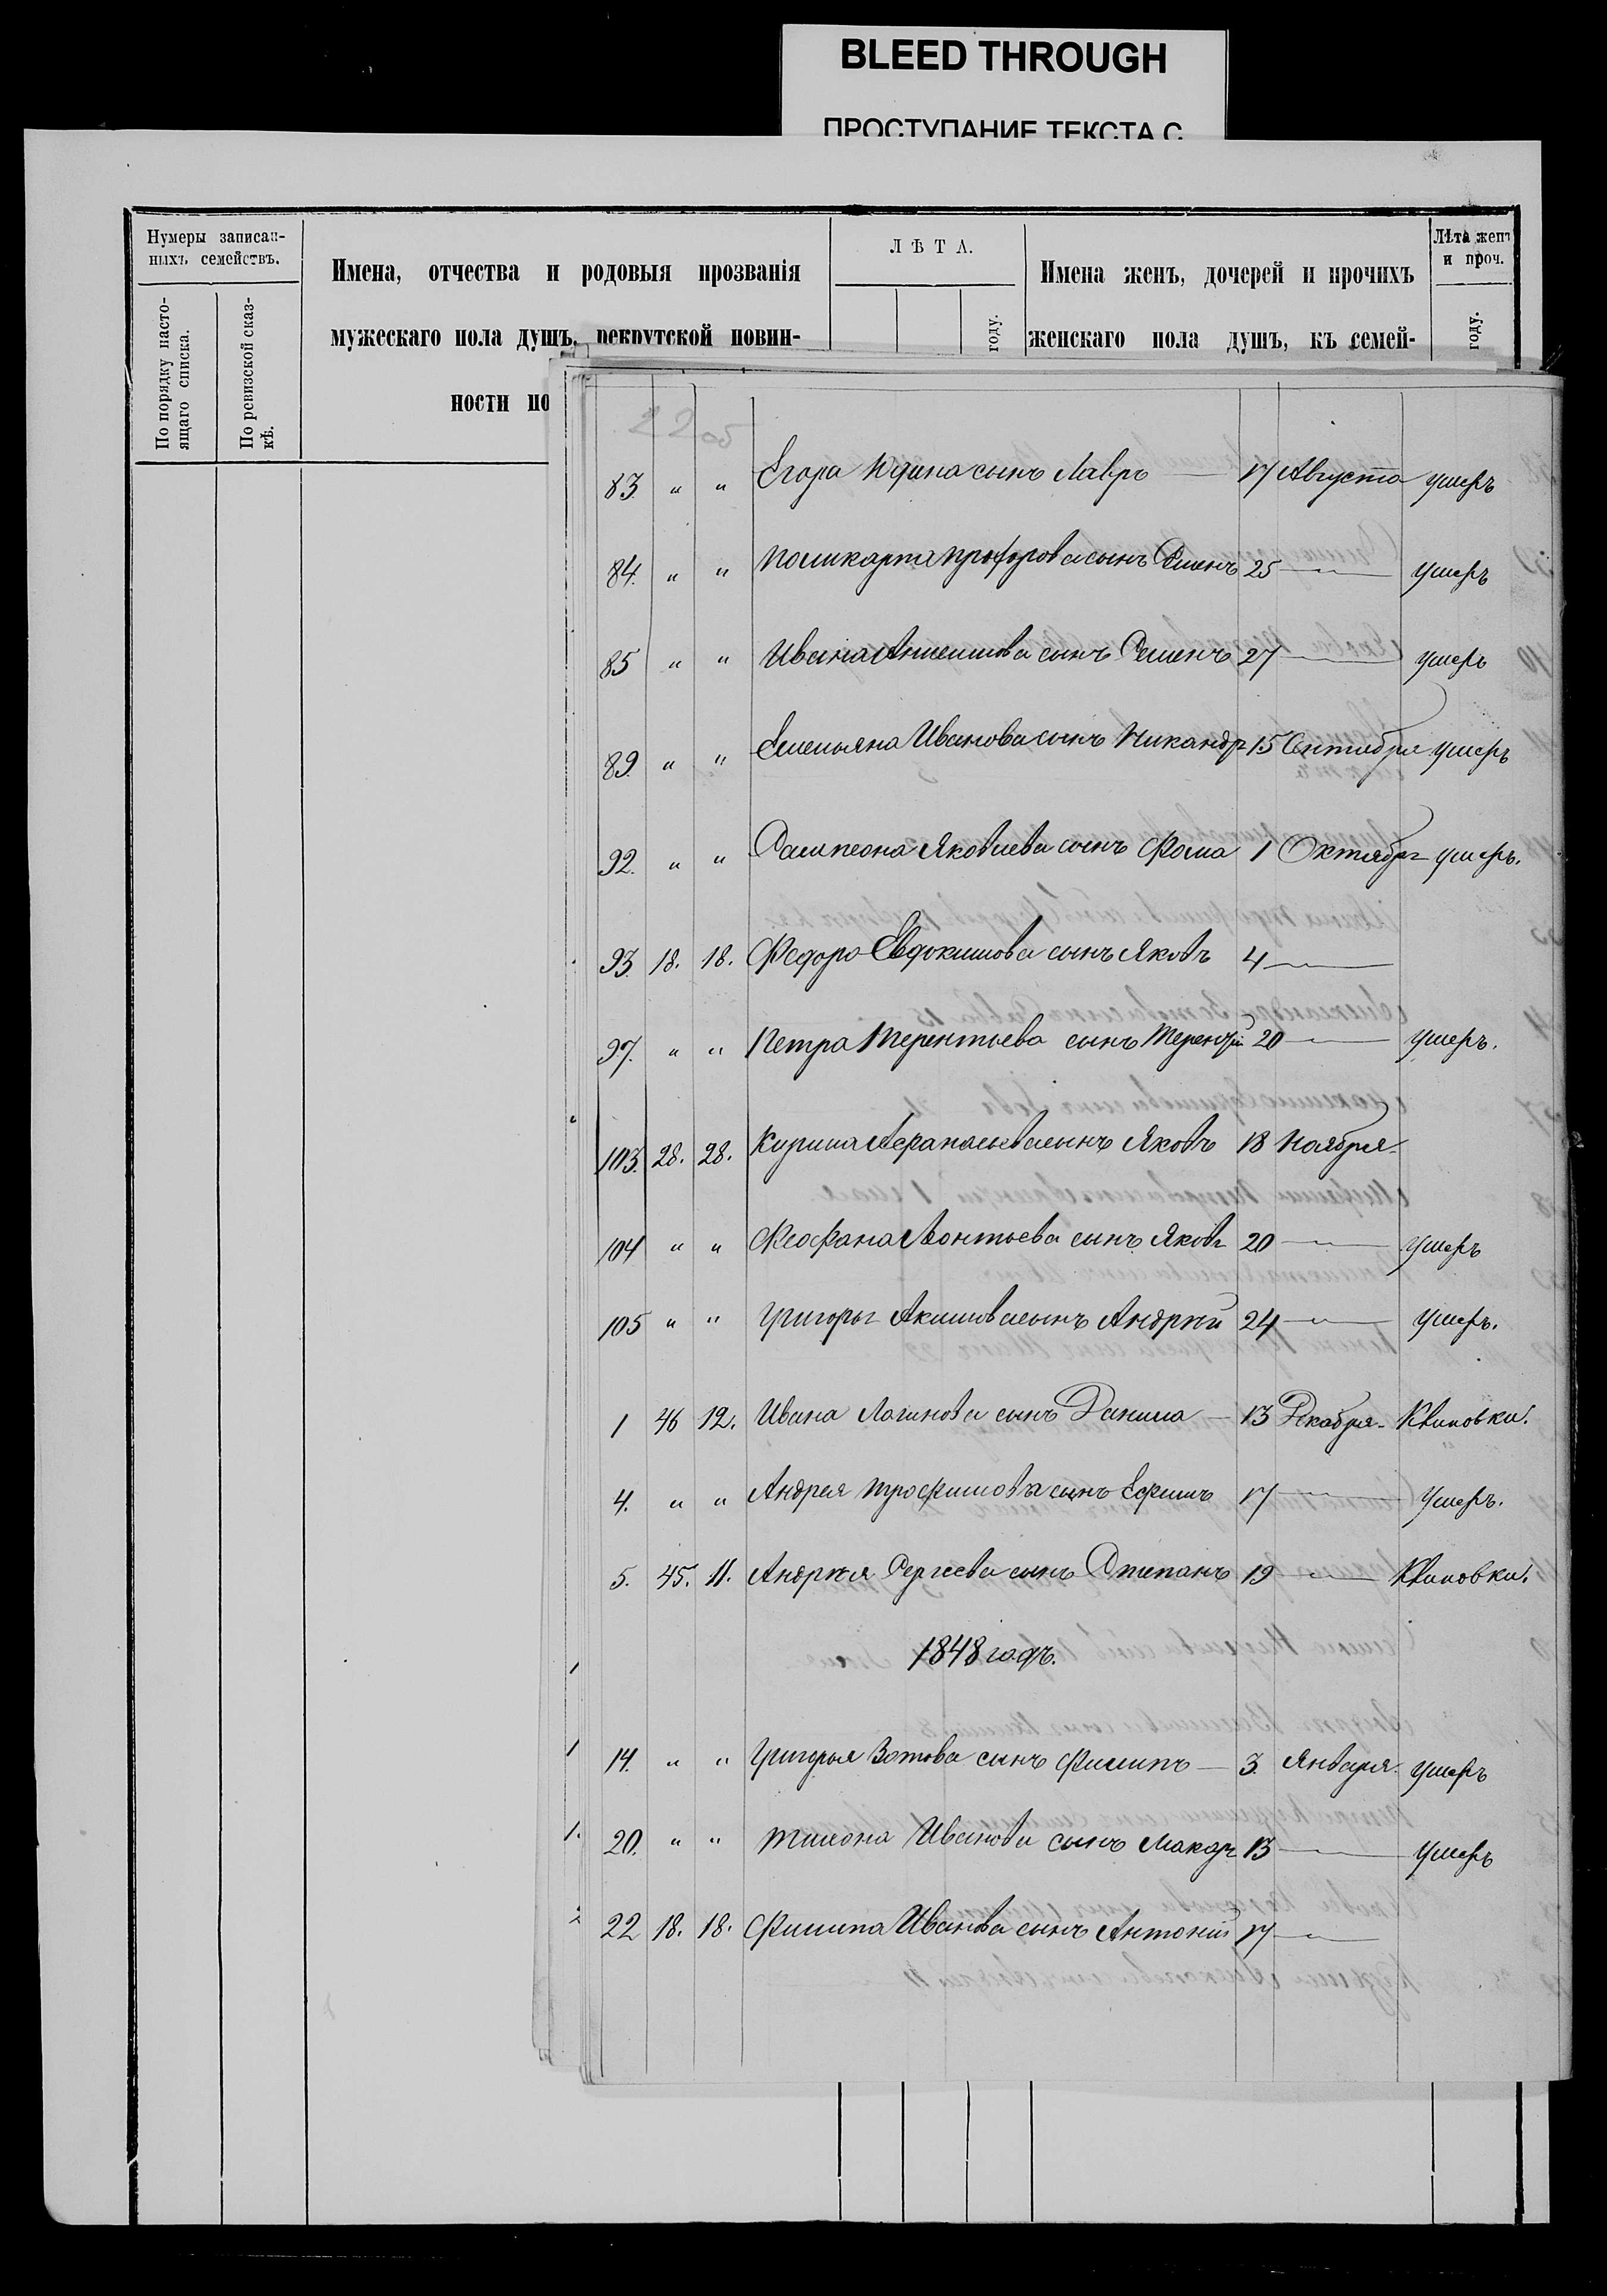 BLEED THROUGH
ПРОСТУПАНИЕ ТЕКСТА С
Нумеры записан-
ныхъ семействъ.
По порядку насто-
ящаго списка.
По ревизской сказ-
кѣ.
Имена, отчества и родовыя прозванія
мужескаго пола душъ, рекрутской повин-
ности по
ЛѢТА.
году.
Имена женъ, дочерей и прочихъ
женскаго пола душъ, къ семей-
Лѣта женъ
и проч.
году.
22 об
83. " " Егора Юдина сынъ Лавръ — 17 Августа умеръ
84. " " Поликарпа Прохорова сынъ Семенъ 25 —"— умеръ
85 " " Ивана Анисимова сынъ Семенъ 27 —"— умеръ
89. " " Емельяна Иванова сынъ Никандр 15 Сентября умеръ
92. " " Сампсона Яковлева сынъ Фома 1 Октября умеръ.
93. 18. 18. Федора Евдокимова сынъ Яковъ 4 —"—
97. " " Петра Терентьева сынъ Терентій 20 —"— умеръ.
103. 28. 28. Кирила Афанасьева сынъ Яковъ 18 Ноября
104 " " Феофана Леонтьева сынъ Яковъ 20 —"— умеръ
105 " " Григорья Акимова сынъ Андрѣй 24 —"— умеръ.
1 46 12. Ивана Логинова сынъ Данила — 13 Декабря
4. " " Андрея Трофимова сынъ Ефимъ 17 —"— умеръ.
5. 45. 11. Андрѣя Сергеева сынъ Степанъ 19 —"—
1848 годъ.
14. " " Григорья Зотова сынъ Филипъ — 3. Января. умеръ
20. " " Тимона Иванова сынъ Макаръ 13 —"— умеръ
22 18. 18. Филипа Иванова сынъ Антоній 17 —"—